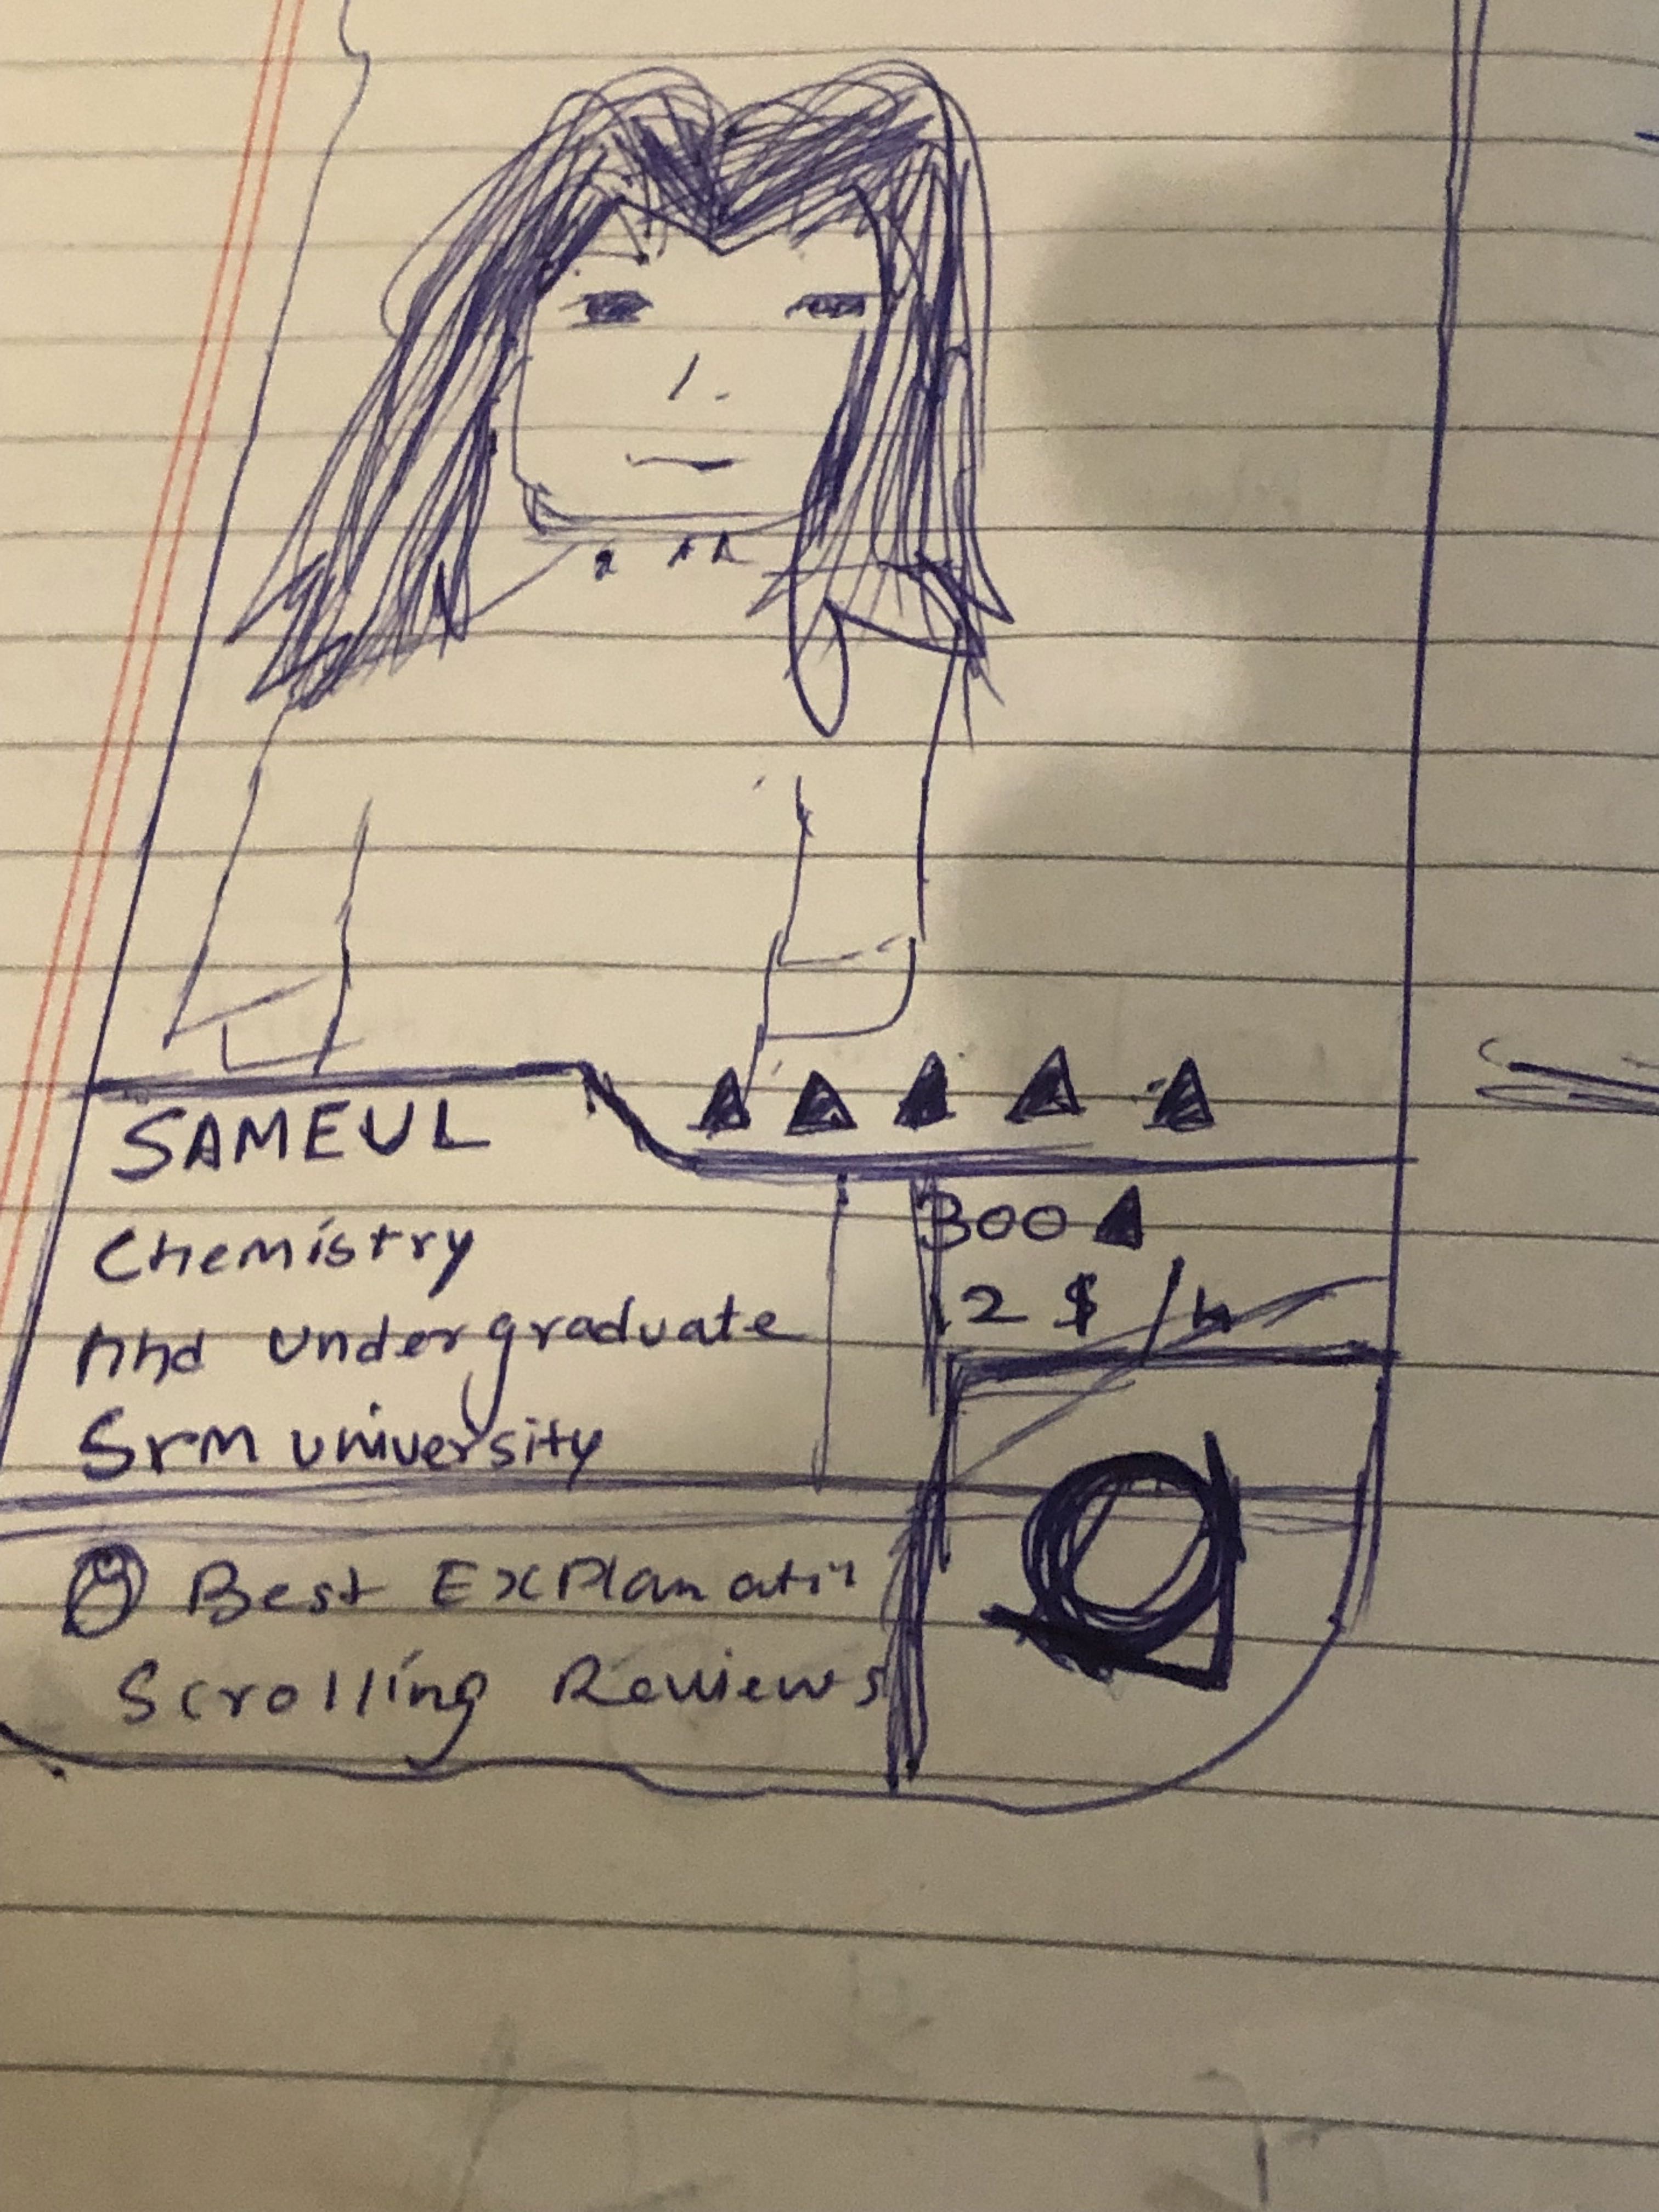 SAMEUL
300
Chemistry
2 $ / h
undergraduate
Srm university
Best Explanati
Scrolling Reviews